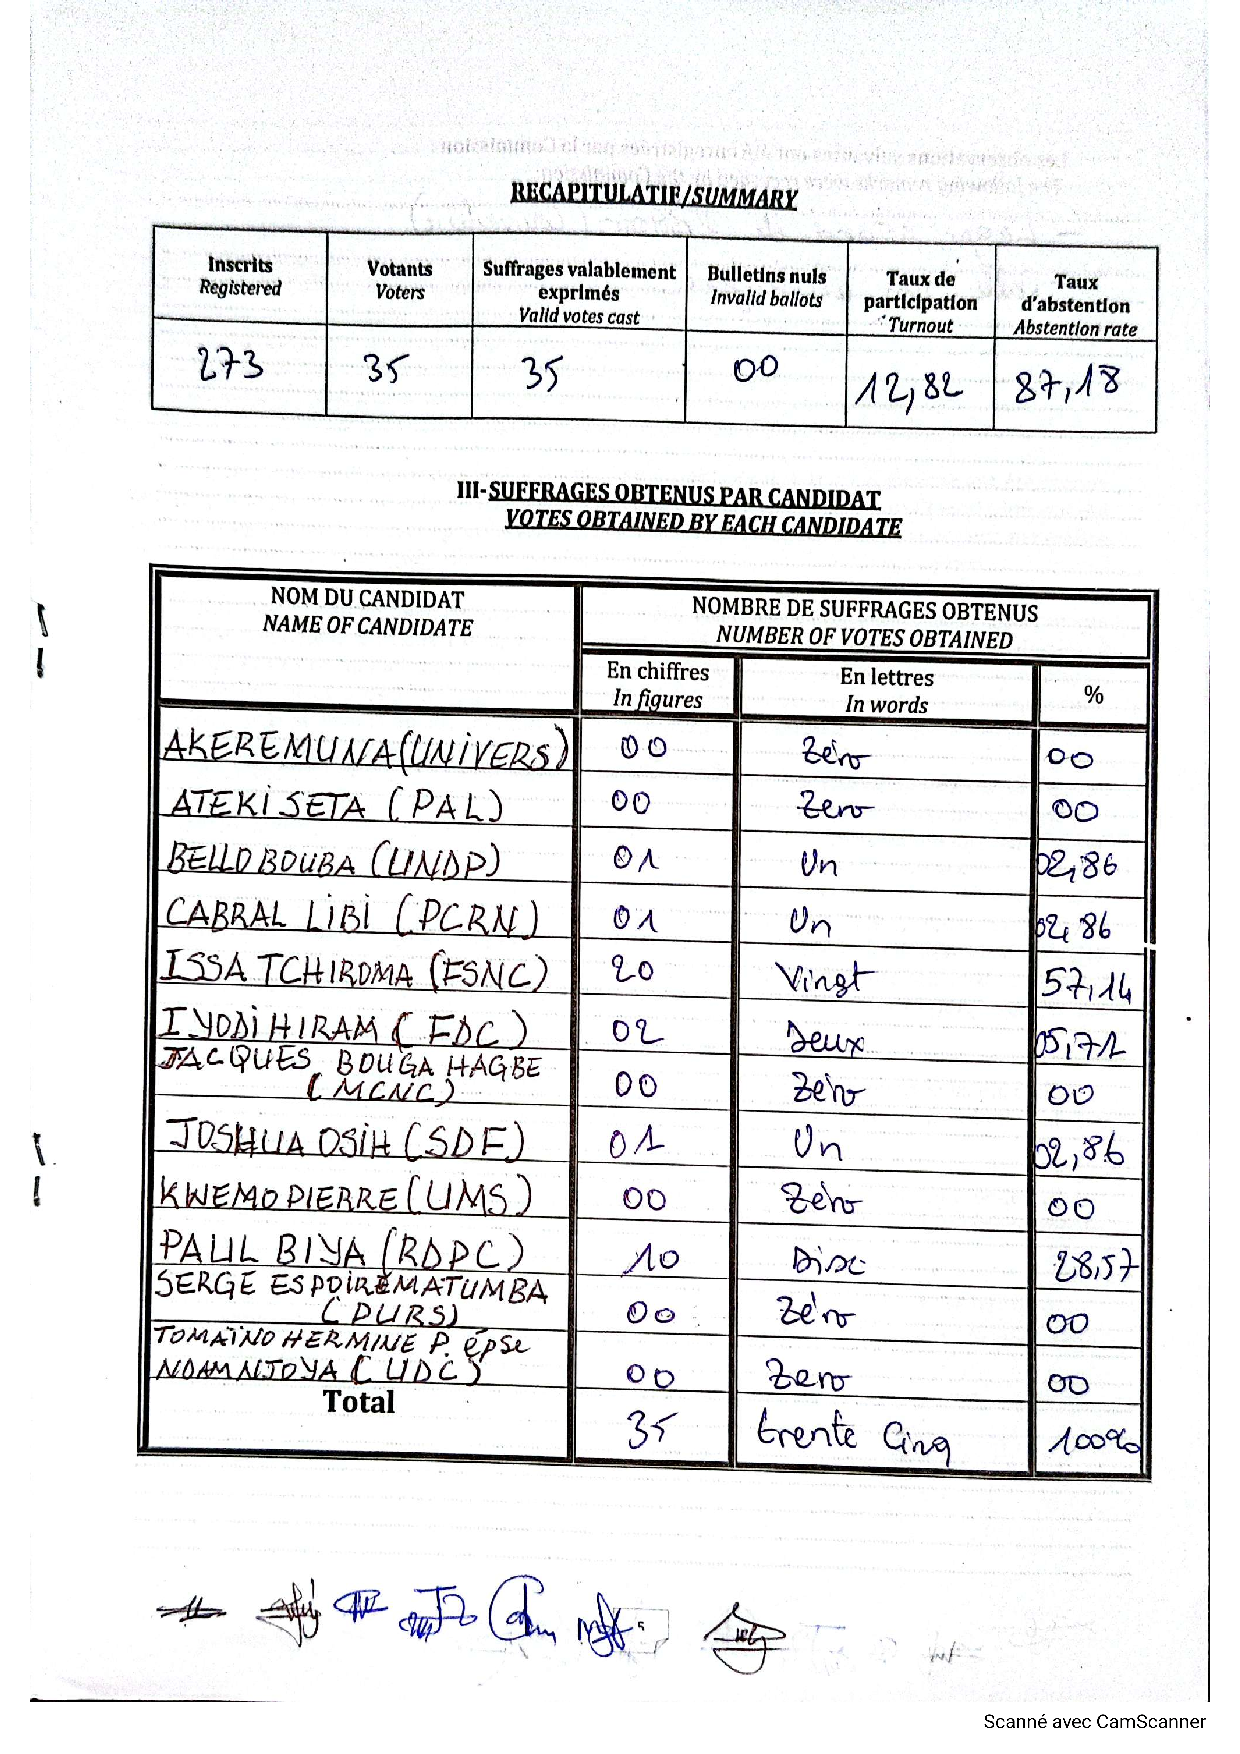 RECAPITULATIF/SUMMARY
Inscrits Registered | Votants Voters | Suffrages valablement exprimés Valid votes cast | Bulletins nuls Invalid ballots | Taux de participation Turnout | Taux d'abstention Abstention rate
273 | 35 | 35 | 00 | 12,82 | 87,18
III-SUFFRAGES OBTENUS PAR CANDIDAT
VOTES OBTAINED BY EACH CANDIDATE
NOM DU CANDIDAT NAME OF CANDIDATE | NOMBRE DE SUFFRAGES OBTENUS NUMBER OF VOTES OBTAINED
En chiffres In figures | En lettres In words | %
AKEREMUNA (UNIVERS) | 00 | Zéro | 00
ATEKI SETA (PAL) | 00 | Zero | 00
BELLO BOUBA (UNDP) | 01 | Un | 02,86
CABRAL LIBI (PCRN) | 01 | Un | 02,86
ISSA TCHIROMA (FSNC) | 20 | Vingt | 57,14
IYODI HIRAM (FDC) | 02 | Deux | 05,71
JACQUES BOUGA HAGBE (MCNC) | 00 | Zéro | 00
JOSHUA OSIH (SDF) | 01 | Un | 02,86
KWEMO PIERRE (UMS) | 00 | Zéro | 00
PAUL BIYA (RDPC) | 10 | Dix | 28,57
SERGE ESPOIR MATUMBA (PURS) | 00 | Zéro | 00
TOMAÏNO HERMINE P. épse NDAM NJOYA (UDC) | 00 | Zero | 00
Total | 35 | trente Cinq | 100%
Scanné avec CamScanner